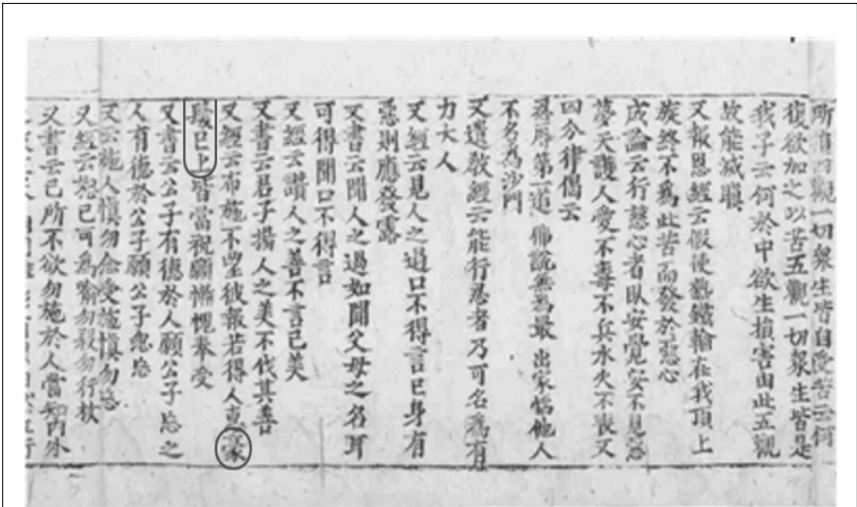 所謂四觀一切衆生皆自受苦云何
復欲加之以苦五觀一切衆生皆是
我子云何於中欲生損害由此五觀
故能滅瞋
又報恩經云假使熱鐵輪在我頂上
旋終不為此苦而發於惡心
成論云行慈心者臥安覺安不見惡
夢天護人愛不毒不兵水火不喪又
四分律偈云
忍辱第一道 佛說無為最 出家惱他人
不名為沙門
又遺教經云能行忍者乃可名為有
力大人
又經云見人之過口不得言己身有
惡則應發露
又書云聞人之過如聞父母之名耳
可得聞口不得言
又經云讚人之善不言己美
又書云君子揚人之美不伐其善
又經云布施不望彼報若得人惠
毫髮已上皆當祝願慚愧奉受
又書云公子有德於人願公子忘之
人有德於公子願公子勿忘
又云施人慎勿念受施慎勿忘
又經云恕己可為喻勿殺勿行杖
又書云己所不欲勿施於人當知內外